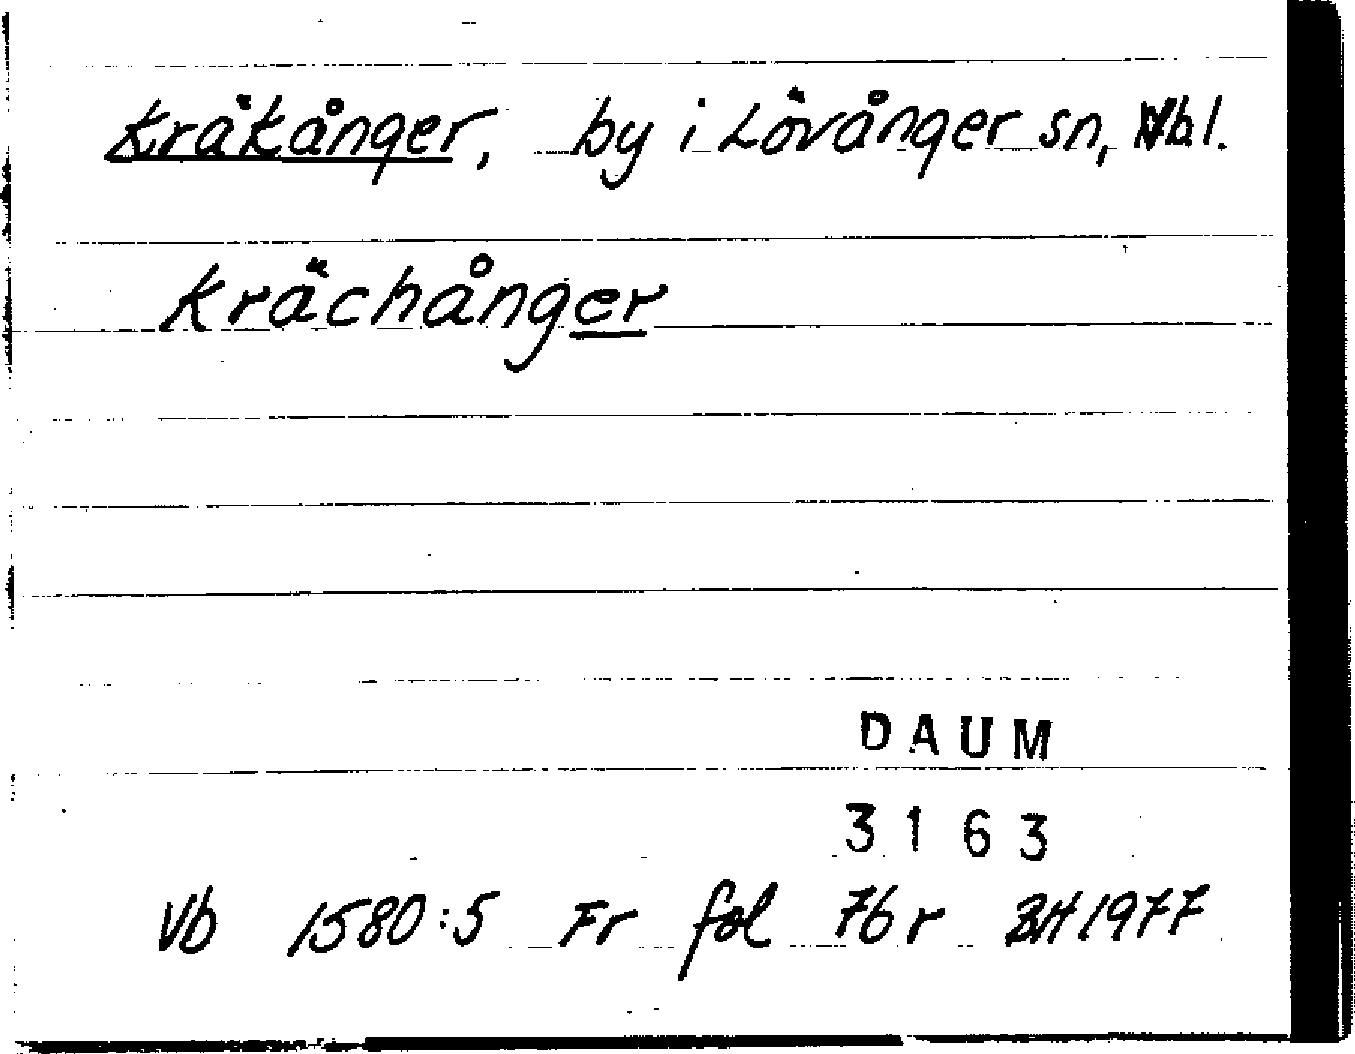 Kräkånger, by i Lövånger sn, Vbl.
Krächånger
DAUM
3163
Vb 1580:5 Fr fol 76r BH 1977